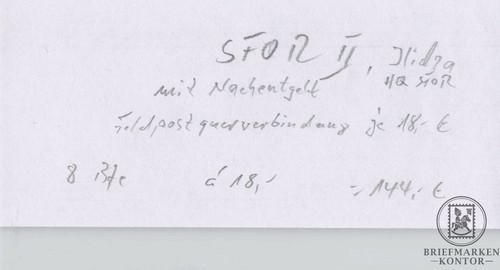 SFOR II, Ilidza
HQ SFOR
mit Nachentgelt
Feldpostquerverbindung je 18,- €
8 Bfe á 18,- = 144,- €
BRIEFMARKEN
KONTOR